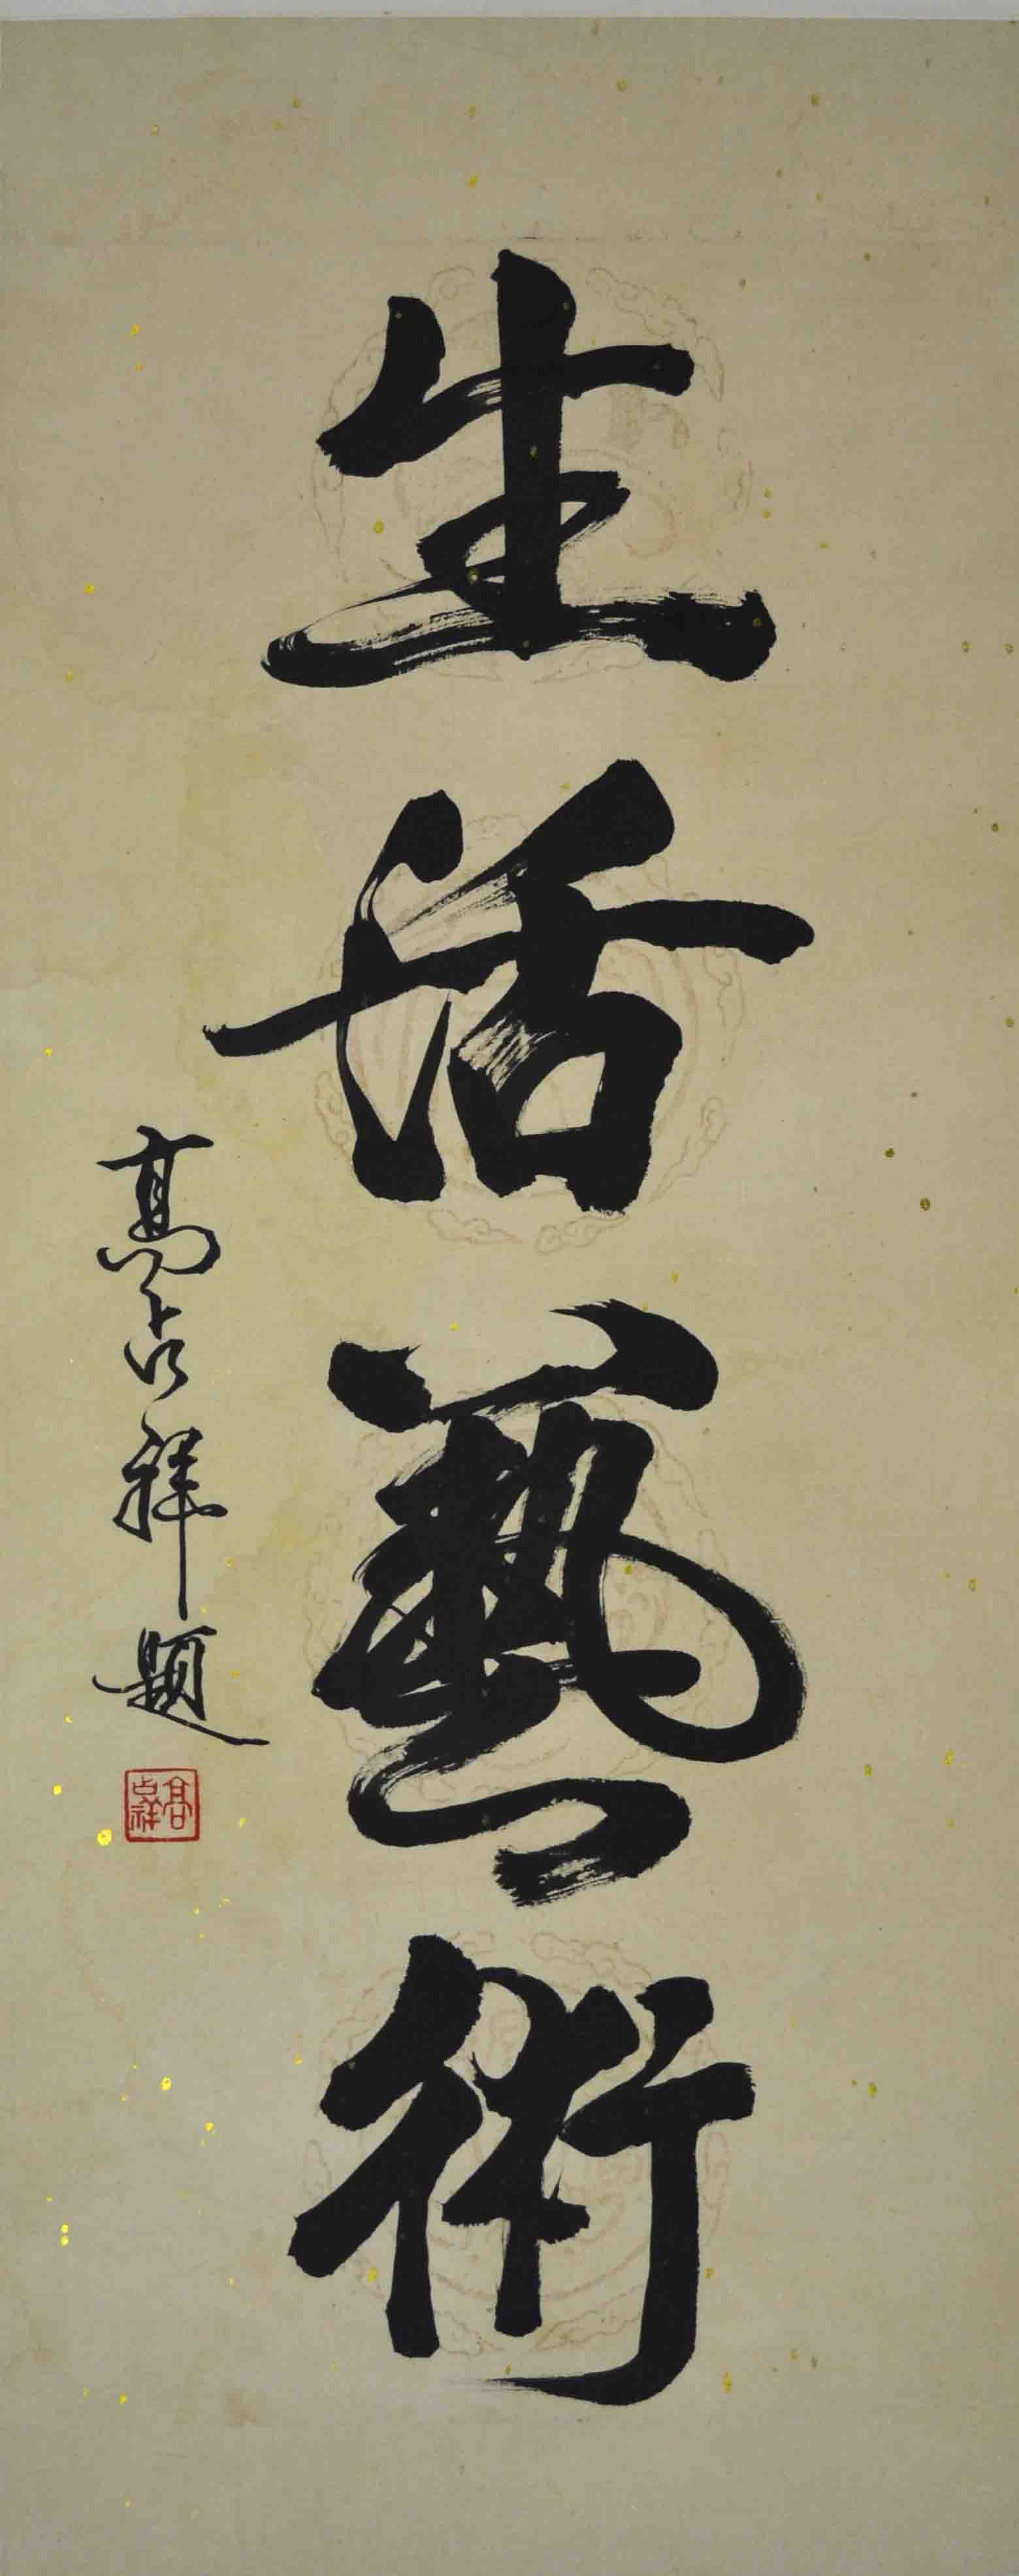 生活藝術
高占祥題
高占祥